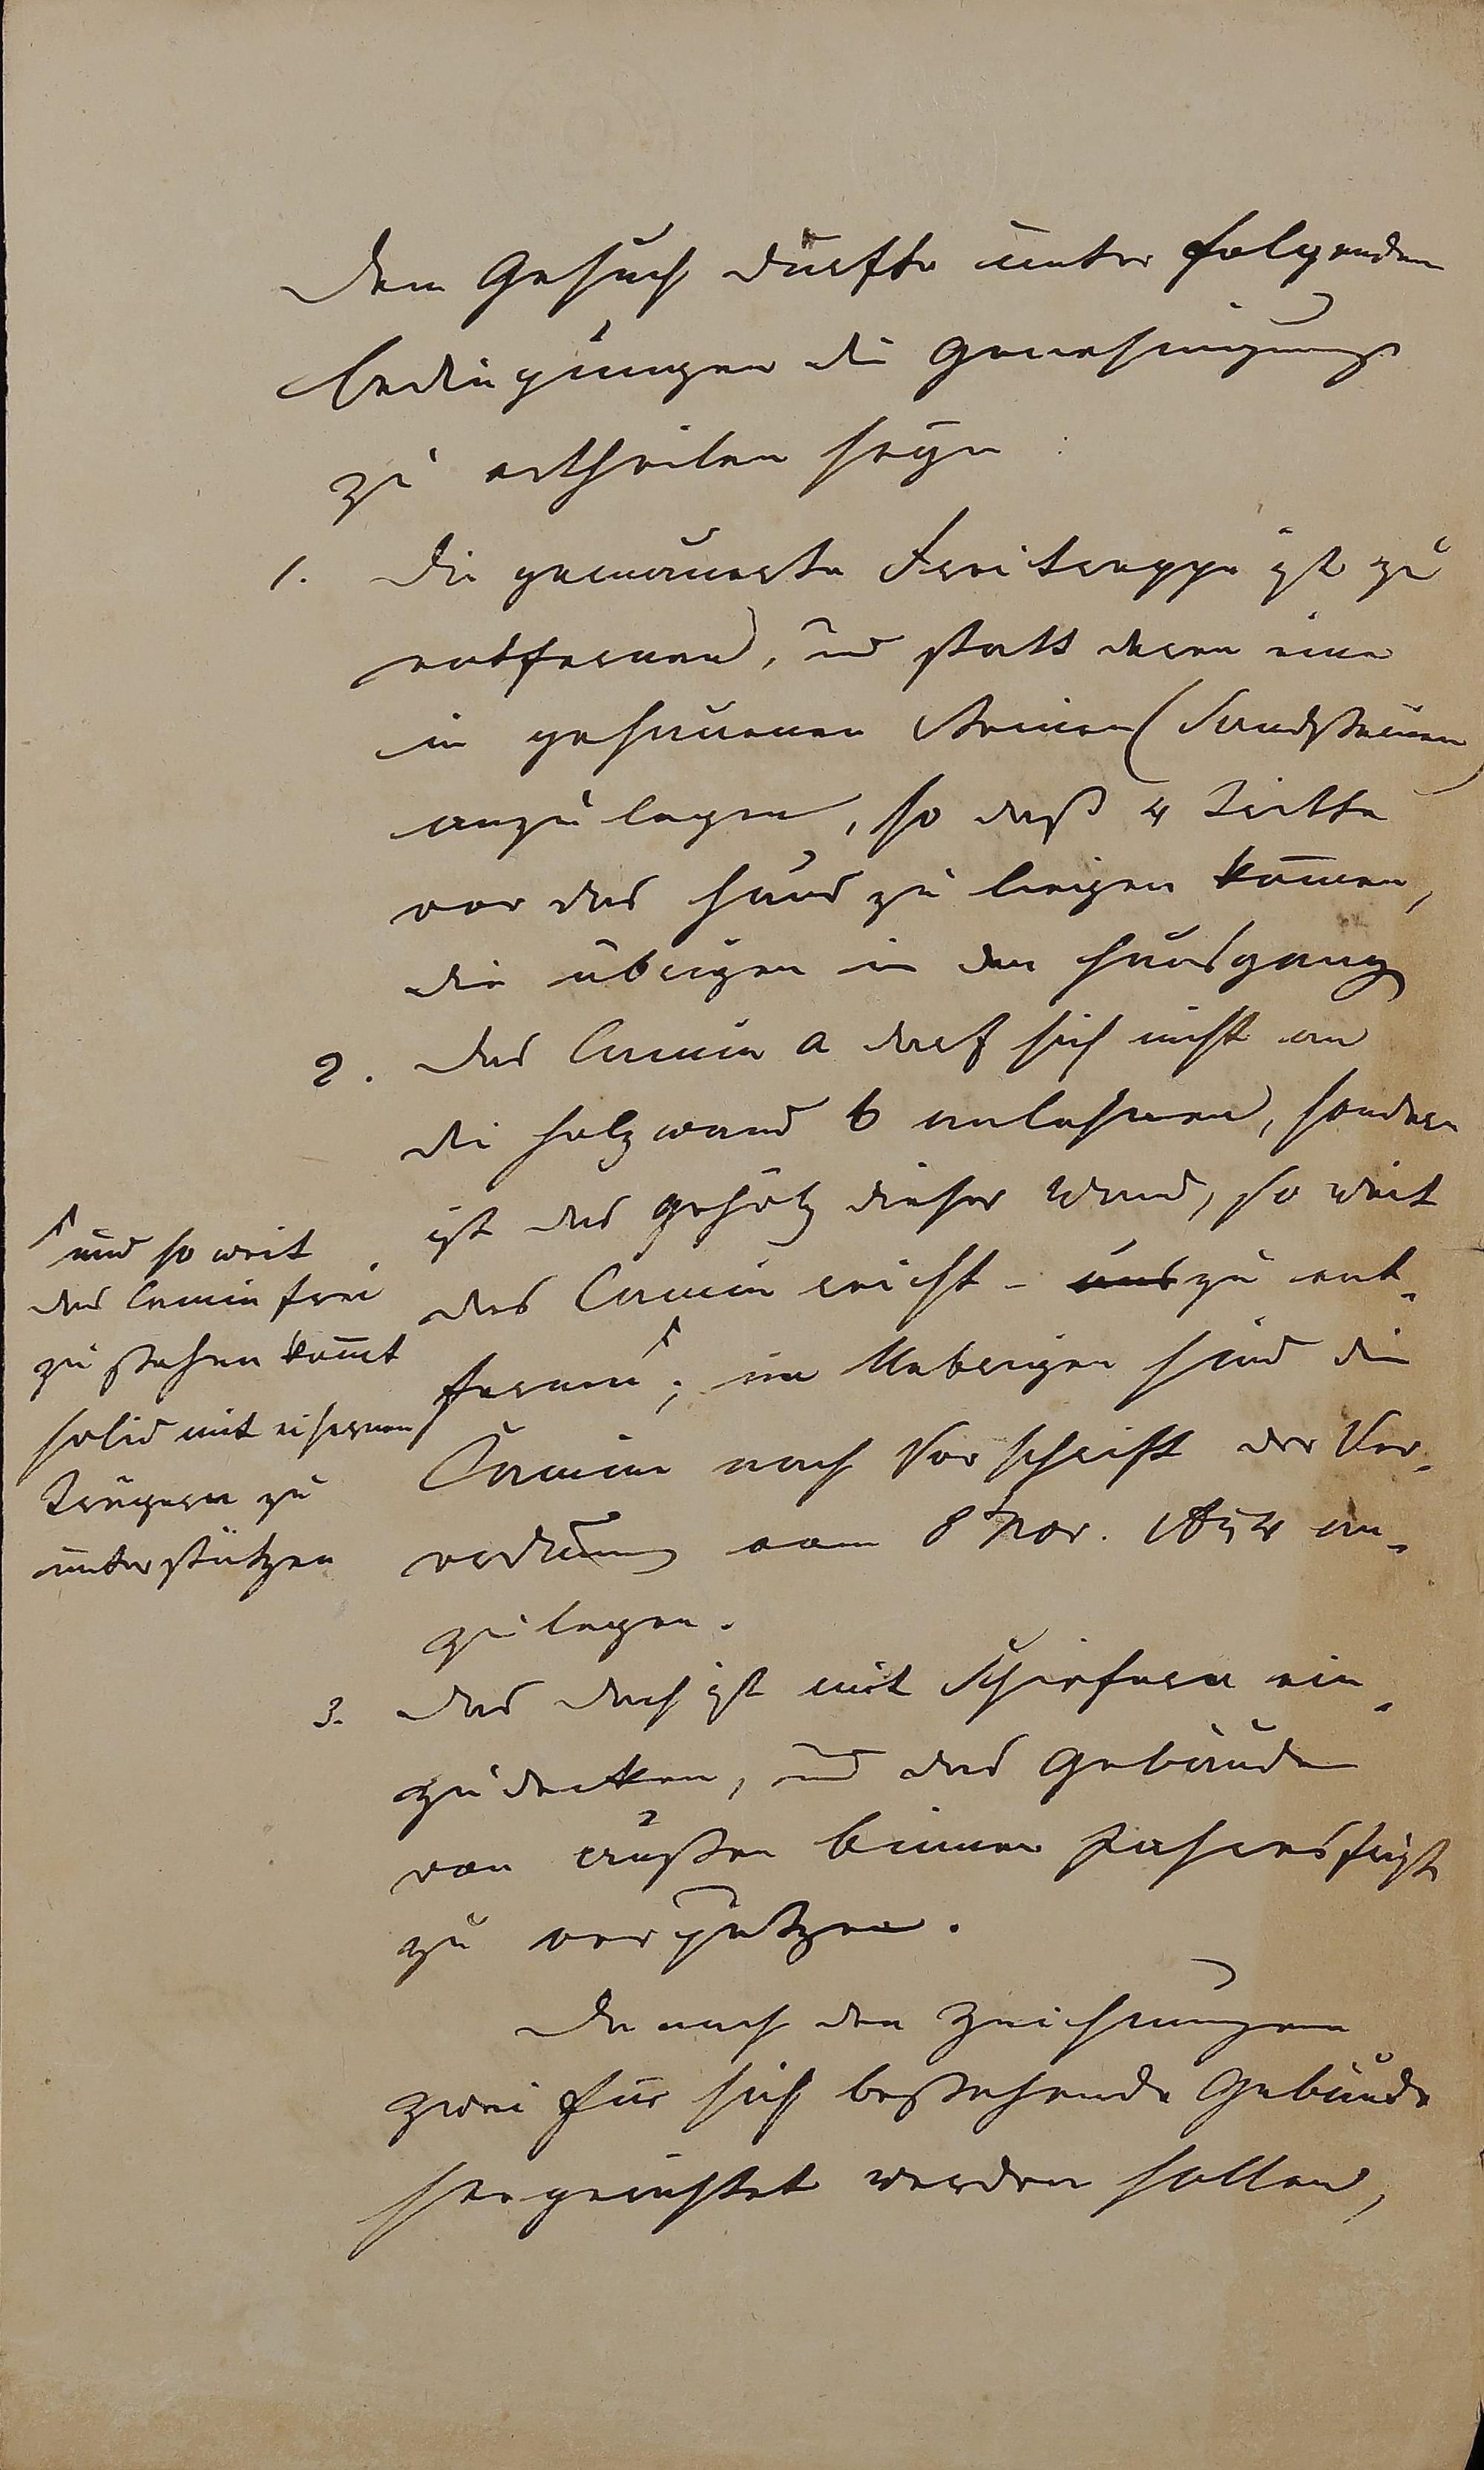 Dem Gesuch dürfte unter folgenden
Bedingungen die Genehmigung
zu ertheilen seyn:
1. Die gemauerte Freitreppe ist zu
entfernen, und statt deren eine
in gehauenen Steinen (Sandsteinen)
anzulegen, so daß 4 Tritte
vor das Haus zu liegen kom̄en,
die übrigen in den Hausgang
2. Das Camin a darf sich nicht an
die Holzwand b anlehnen, sondern
ist das Gehölz dieser Wand, so weit
das Camin reicht - aus zu ent-
fernen ⌈; im Uebrigen sind die
Camine nach Vorschrift der Ver-
ordnung vom 8 Nov. 1854 an-
zulegen.
⌈ und so weit
das Camin frei
zu stehen kom̄t
solid mit eisernen
Trägern zu
unterstützen
3. Das Dach ist mit Schiefern ein-
zudecken, und das Gebäude
von außen binnen Jahresfrist
zu verputzen.
Da nach den Zeichnungen
zwei für sich bestehende Gebäude
hergerichtet werden sollen,